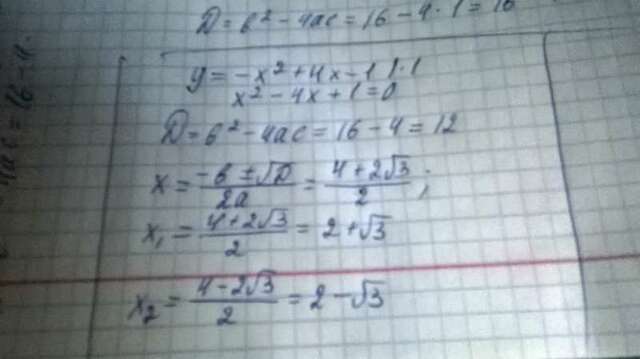 D = b² - 4ac = 16 - 4 · 1 = 16
y = -x² + 4x - 1 | · 1
x² - 4x + 1 = 0
D = b² - 4ac = 16 - 4 = 12
x = (-b ± √D)/2a = (4 + 2√3)/2 ;
x₁ = (4 + 2√3)/2 = 2 + √3
x₂ = (4 - 2√3)/2 = 2 - √3
4ac = 16 - 4 ·